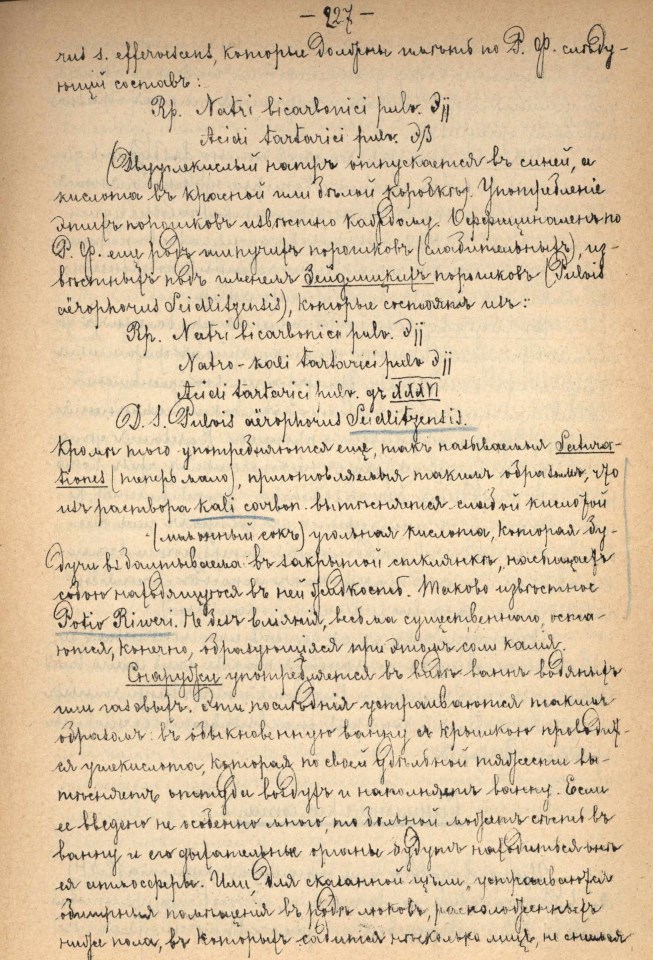 — 227 —
rus s. effervescens, которые должны имѣть по Р. Ф. слѣду-
ющій составъ:
Rp. Natri bicarbonici pulv. ℈jj
Acidi tartarici pulv. ℈β
(Двууглекислый натръ отпускается въ синей, а
кислота въ красной или бѣлой коробкѣ). Употребленіе
этихъ порошковъ извѣстно каждому. Оффициналенъ по
Р. Ф. еще родъ шипучихъ порошковъ (слабительныхъ), из-
вѣстныхъ подъ именемъ Зейдлицкихъ порошковъ (Pulvis
aërophorus Seidlitzensis), которые состоятъ изъ:
Rp. Natri bicarbonici pulv. ℈jj
Natro-kali tartarici pulv ℈jj
Acidi tartarici pulv. gr XXXVI
D. S. Pulvis aërophorus Seidlitzensis.
Кромѣ того употребляются еще, такъ называемыя Satura-
tiones (теперь мало), приготовляемыя такимъ образомъ, что
изъ раствора Kali carbon. вытѣсняется слабой кислотой
(лимонный сокъ) угольная кислота, которая бу-
дучи взбалтываема въ закрытой стклянкѣ, насыщаетъ
собою находящуюся въ ней жидкость. Таково извѣстное
Potio Riweri. Не безъ вліянія, весьма существеннаго, оста-
ются, конечно, образующіяся при этомъ соли калія.
Снаружи употребляется въ видѣ ваннъ водяныхъ
или газовыхъ. Эти послѣднія устраиваются такимъ
образомъ: въ обыкновенную ванну съ крышкою проводит-
ся углекислота, которая по своей удѣльной тяжести вы-
тѣсняетъ оттуда воздухъ и наполняетъ ванну. Если
ее введено не особенно много, то больной можетъ сѣсть въ
ванну и его дыхательные органы будутъ находиться внѣ
ея атмосферы. Или, для сказанной цѣли, устраиваются
обширныя помѣщенія въ родѣ люковъ, расположенныхъ
ниже пола, въ которыхъ садится нѣсколько лицъ, не снимая